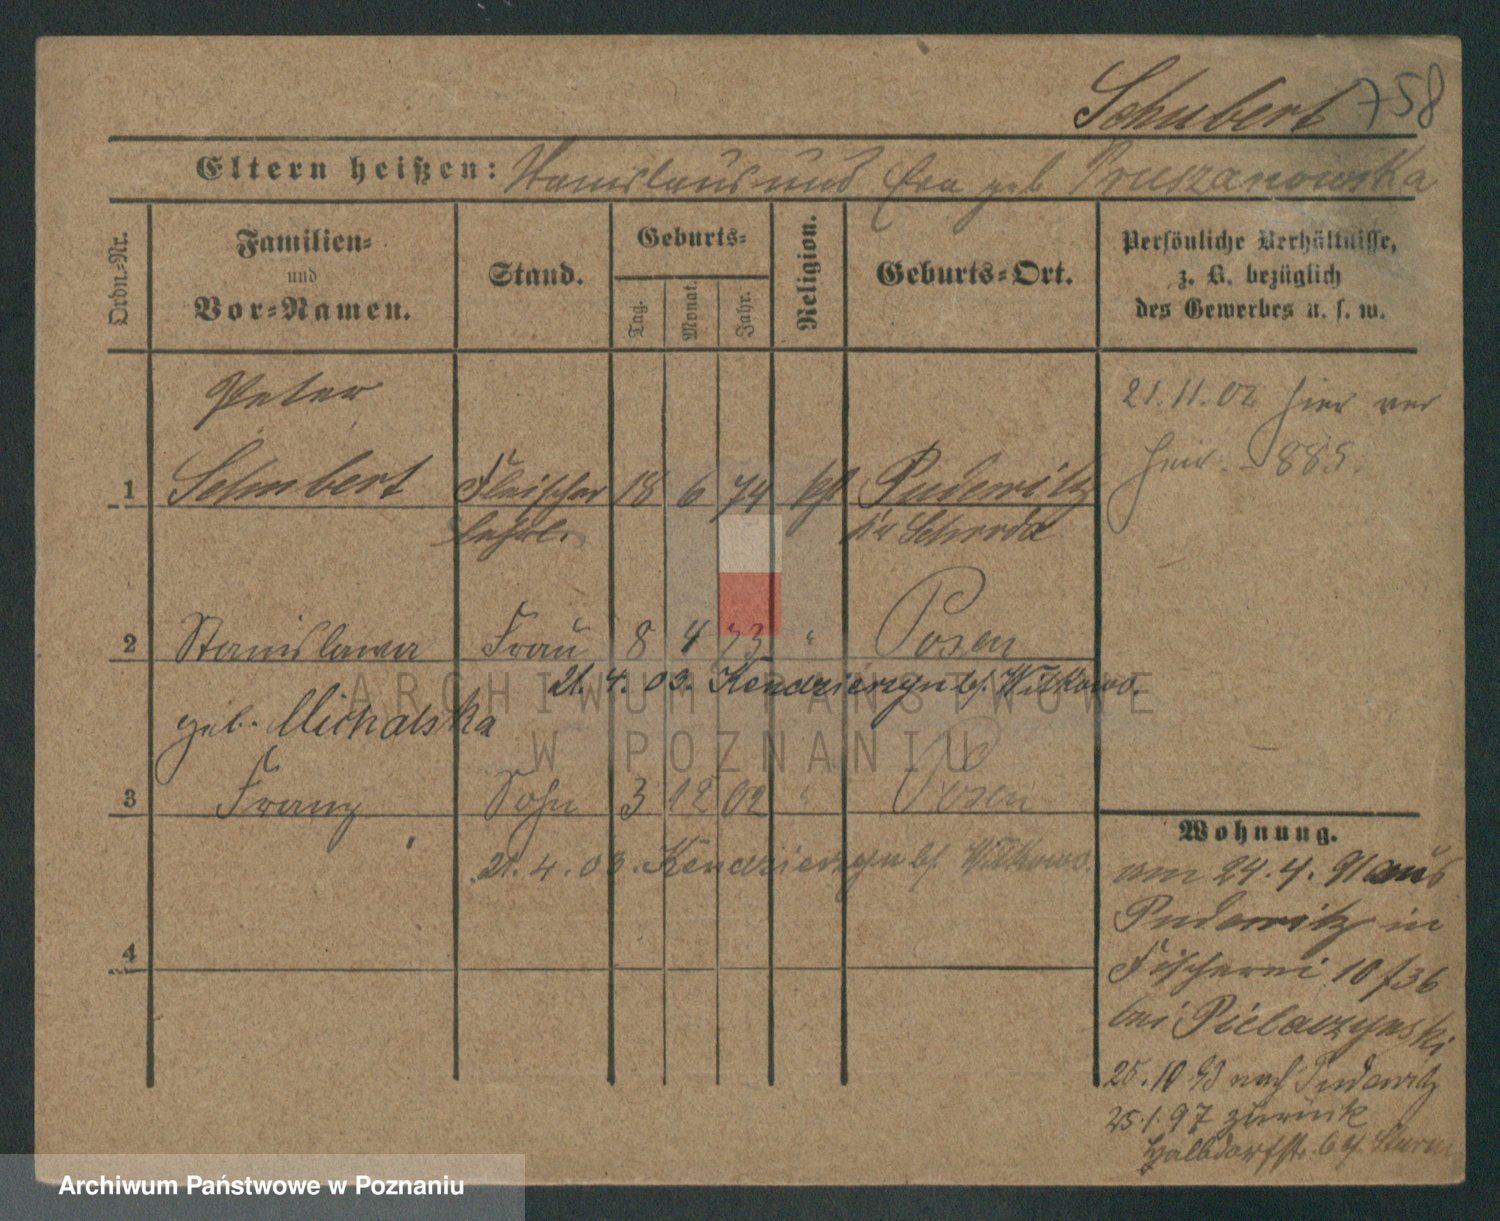 Schubert 758
Eltern heißen: Stanislaus und Eva geb Pruszanowska
Ordn.-Nr.
Familien-
und
Vor-Namen.
Stand.
Geburts-
Tag.
Monat.
Jahr.
Religion.
Geburts-Ort.
Persönliche Verhältnisse,
z. B. bezüglich
des Gewerbes u. s. w.
Peter
1 Schubert Fleischer 18 6 74 kth Pudewitz
lehrl. Kr Schroda
21.11.02 hier ver
heir. 885.
2 Stanislawa Frau 8 4 73 " Posen
21.4.03. bs. Witkowo.
geb. Michalska
3 Franz Sohn 3 12 02 " Posen
21.4.03. bs. Witkowo.
4
Wohnung.
am 24.4.91 aus
Pudewitz in
Fischerei 10 f 36
bei
25.10 93 nach Pudewitz
25.1.97 zurück
Halbdorfstr.
ARCHIWUM PAŃSTWOWE
W POZNANIU
Archiwum Państwowe w Poznaniu